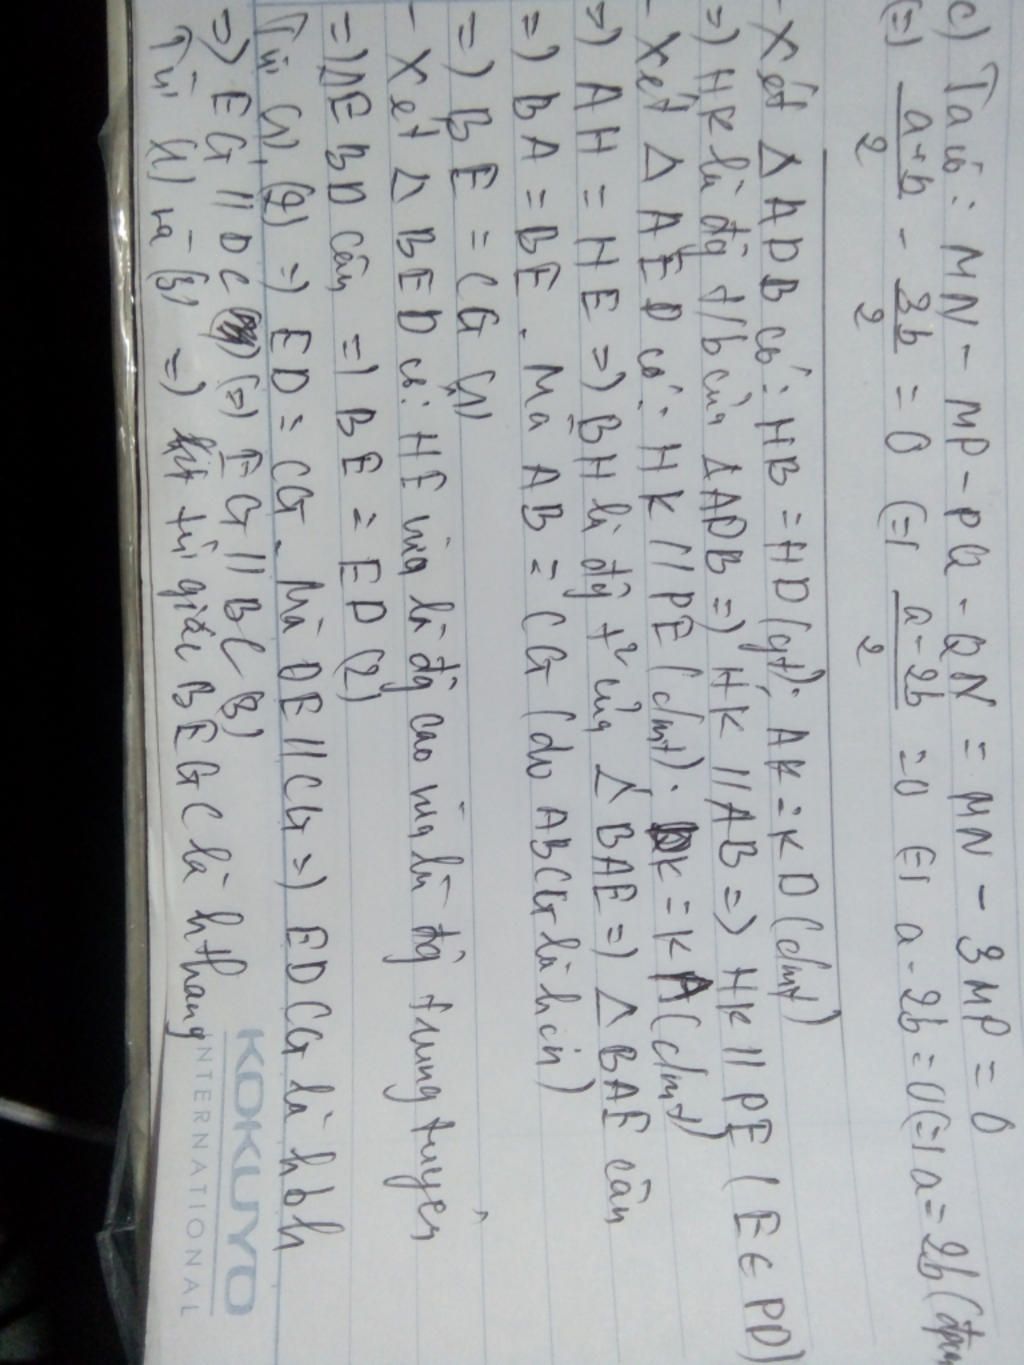 c) Ta có: MN - MP - PQ - QN = MN - 3MP = 0
(=) a+b/2 - 3b/2 = 0 (=) a-2b/2 = 0 (=) a-2b = 0 (=) a = 2b (đpcm
- Xét Δ ADB có: HB = HD (gt); AK = KD (cmt)
=) HK là đg t/b của Δ ADB =) HK // AB =) HK // PE ( E ∈ PD)
- Xét Δ AED có: HK // PE (cmt). K = KA (cmt)
=) AH = HE =) BH là đg t² của Δ BAE =) Δ BAE cân
=) BA = BE. Mà AB = CG (do ABCG là hcn)
=) BE = CG (1)
- Xét Δ BED có: HE vừa là đg cao vừa là đg trung tuyến
=) Δ EBD cân =) BE = ED (2)
Từ (1), (2) =) ED = CG. Mà DE // CG =) EDCG là hbh
=) EG // DC (=) EG // BC (3)
Từ (1) và (3) =) tứ giác BEGC là hthang
KOKUYO
INTERNATIONAL